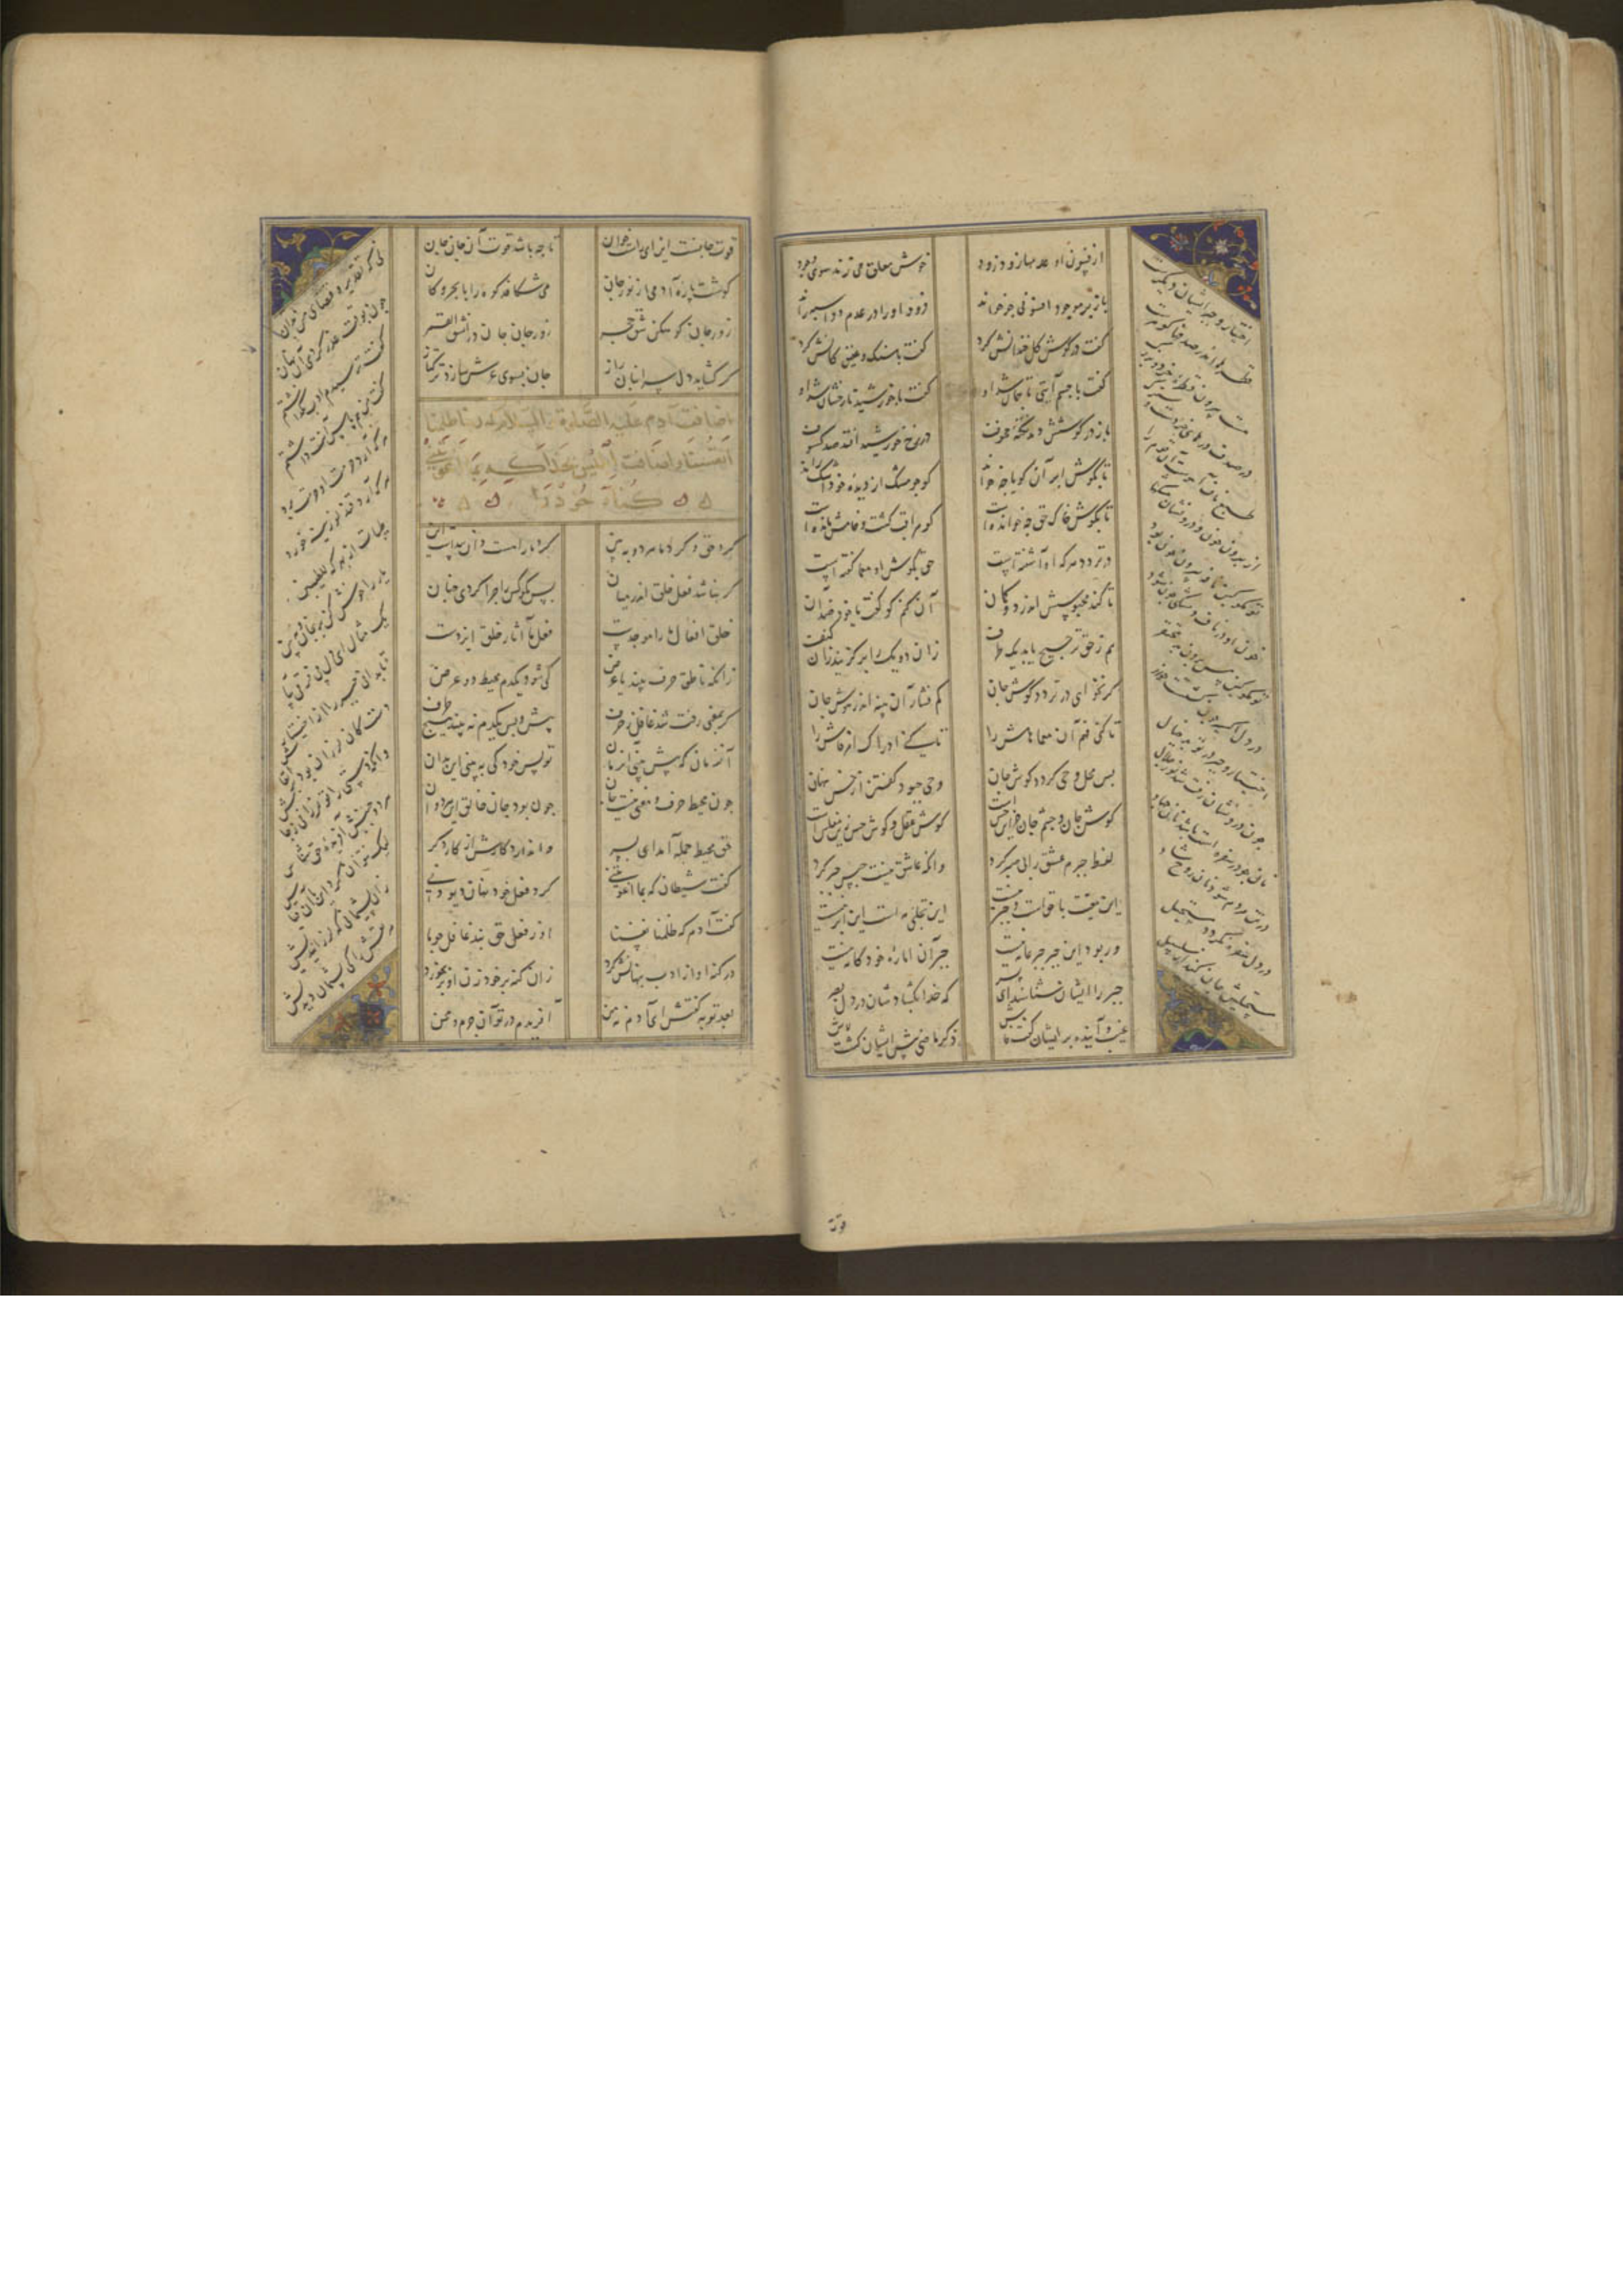 از فسون او عدمها زود زود خوش معلق می زند سوی وجود
باز بر موجود افسونی چو خواند زود او را در عدم دو اسبه راند
گفت در گوش گل خندانش کرد گفت با سنگ و عقیق کانش کرد
گفت با جسم آیتی تا جان شد او گفت با خورشید تا رخشان شد او
باز در گوشش دمد نکته مخوف در رخ خورشید افتد صد کسوف
تا بگوش ابر آن گویا چه خواند کو چو مشک از دیده خود اشک راند
تا بگوش خاک حق چه خوانده است کو مراقب گشت و خامش مانده است
در تردد هر که او آشفته است حق بگوش او معما گفته است
تا کند محبوسش اندر دو گمان آن کنم کو گفت یا خود ضد آن
هم ز حق ترجیح یابد یک طرف زان دو یک را بر گزیند زان کنف
گر نخواهی در تردد گوش جان کم فشار آن پنبه اندر گوش جان
تا کنی فهم آن معماهاش را تا کنی ادراک رمز و فاش را
پس محل وحی گردد گوش جان وحی چبود گفتن از حس نهان
گوش جان و چشم جان جز این حس است گوش عقل و گوش حس زین مفلس است
لفظ جبرم عشق را بی صبر کرد وانکه عاشق نیست حبس جبر کرد
این معیت با حق است و جبر نیست این تجلی مه است این ابر نیست
ور بود این جبر جبر عامه نیست جبر آن اماره خود کامه نیست
جبر را ایشان شناسند ای پسر که خدا بگشادشان در دل بصر
غیب و آینده بر ایشان گشت فاش ذکر ماضی پیش ایشان گشت لاش
اختیار و جبر ایشان دیگرست
قطره ها اندر صدفها گوهرست
هست بیرون قطره خرد و بزرگ
در صدف در های خردست و سترگ
طبع ناف آهوست آن قوم را
از برون خون و درونشان مشکها
تو مگو کین مایه بیرون خون بود
تو مگو کین مس برون بد محتقر
در دل اکسیر چون
اختیار و جبر در تو بد خیال
چون در ایشان رفت شد نور جلال
نان چو در سفره است باشد آن جماد
در تن مردم شود او روح شاد
در دل سفره نگردد مستحیل
مستحیلش جان کند از سلسبیل
قوت
قوت جانست این ای راست خوان تا چه باشد قوت آن جان جان
گوشت پاره آدمی از زور جان می شکافد کوه را با بحر و کان
زور جان کوه کن شق حجر زور جان جان در انشق القمر
گر گشاید دل سر انبان راز جان بسوی عرش سازد ترکتاز
اضافت آدم علیه الصلوة والسلام که ربنا ظلمنا
انفسنا و اضافت ابلیس بخدا که بما اغویتنی
گناه خود را
کرد حق و کرد ما هر دو ببین کرد ما را هست دان پیداست این
گر نباشد فعل خلق اندر میان پس مگو کس را چرا کردی چنان
خلق حق افعال ما را موجد است فعل ما آثار خلق ایزدست
زانکه ناطق حرف بیند یا غرض کی شود یکدم محیط دو عرض
گر بمعنی رفت شد غافل ز حرف پیش و پس یکدم نبیند هیچ طرف
آن زمان که پیش بینی آن زمان تو پس خود کی ببینی این بدان
چون محیط حرف و معنی نیست جان چون بود جان خالق این هر دوان
حق محیط جمله آمد ای پسر وا ندارد کارش از کار دگر
گفت شیطان که بما اغویتنی کرد فعل خود نهان دیو دنی
گفت آدم که ظلمنا نفسنا او ز فعل حق نبد غافل چو ما
در گنه او از ادب پنهانش کرد زان گنه بر خود زدن او بر بخورد
بعد توبه گفتش ای آدم نه من آفریدم در تو آن جرم و محن
نی که تقدیر و قضای من بد آن
چون بوقت عذر کردی آن نهان
گفت ترسیدم ادب نگذاشتم
گفت من هم پاس آنت داشتم
هر که آرد حرمت او حرمت برد
هر که آرد قند لوزینه خورد
طیبات از بهر که للطیبین
یار را خوش کن برنجان و ببین
یک مثال ای دل پی فرقی بیار
تا بدانی جبر را از اختیار
دست کان لرزان بود از ارتعاش
وانکه دستی را تو لرزانی ز جاش
هر دو جنبش آفریده حق شناس
لیک نتوان کرد این با آن قیاس
زان پشیمانی که لرزانیدیش
مرتعش را کی پشیمان دیدیش